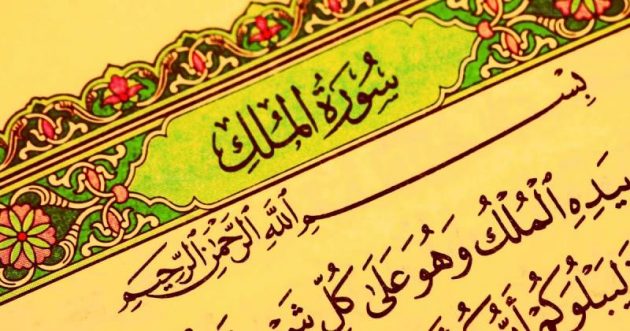 سُورَةُ المُلْكِ
بِسْمِ اللَّهِ الرَّحْمَٰنِ الرَّحِيمِ
بِيَدِهِ الْمُلْكُ وَهُوَ عَلَىٰ كُلِّ
لِيَبْلُوَكُمْ أَيُّكُمْ